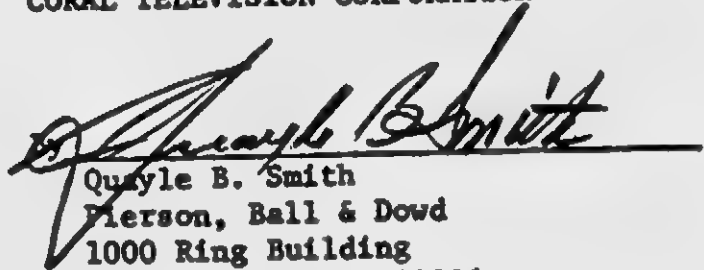 CORAL TELEVISION CORPORATION
Quayle B Smith
Quayle B. Smith
Pierson, Ball & Dowd
1000 Ring Building